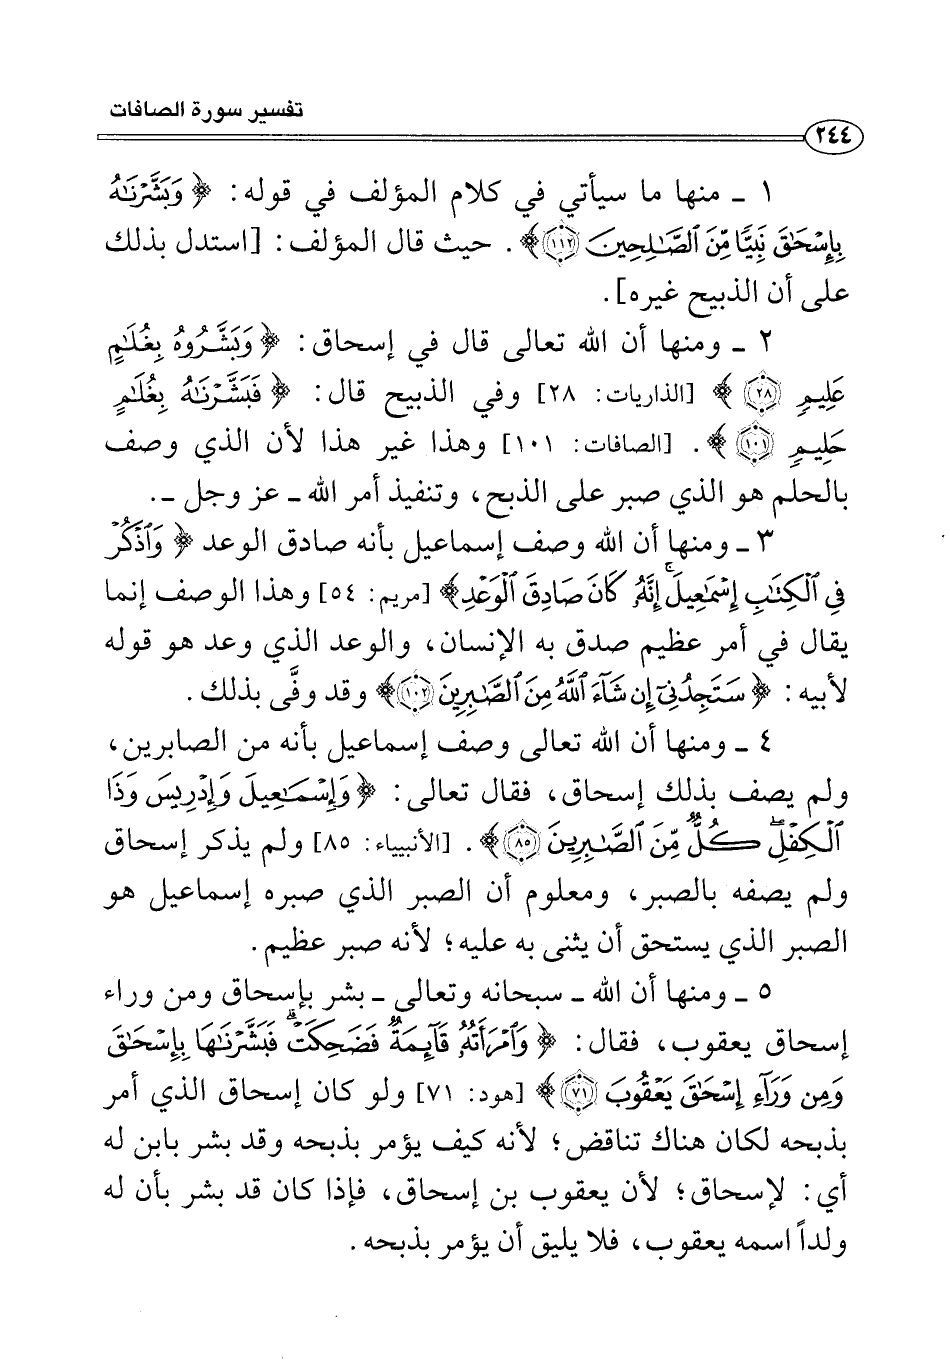 تفسير سورة الصافات
٢٤٤
١ ـ منها ما سيأتي في كلام المؤلف في قوله: ﴿ وَبَشَّرْنَٰهُ
بِإِسْحَٰقَ نَبِيًّا مِّنَ ٱلصَّٰلِحِينَ ١١٢﴾ . حيث قال المؤلف: [استدل بذلك
على أن الذبيح غيره].
٢ ـ ومنها أن الله تعالى قال في إسحاق: ﴿ وَبَشَّرُوهُ بِغُلَٰمٍ
عَلِيمٍ ٢٨ ﴾ [الذاريات: ٢٨] وفي الذبيح قال: ﴿ فَبَشَّرْنَٰهُ بِغُلَٰمٍ
حَلِيمٍ ١٠١ ﴾ . [الصافات: ١٠١] وهذا غير هذا لأن الذي وصف
بالحلم هو الذي صبر على الذبح، وتنفيذ أمر الله ـ عز وجل ـ.
٣ ـ ومنها أن الله وصف إسماعيل بأنه صادق الوعد ﴿ وَٱذْكُرْ
فِي ٱلْكِتَٰبِ إِسْمَٰعِيلَ ۚ إِنَّهُۥ كَانَ صَادِقَ ٱلْوَعْدِ﴾ [مريم: ٥٤] وهذا الوصف إنما
يقال في أمر عظيم صدق به الإنسان، والوعد الذي وعد هو قوله
لأبيه: ﴿ سَتَجِدُنِيٓ إِن شَآءَ ٱللَّهُ مِنَ ٱلصَّٰبِرِينَ ١٠٢﴾ وقد وفَّى بذلك .
٤ ـ ومنها أن الله تعالى وصف إسماعيل بأنه من الصابرين،
ولم يصف بذلك إسحاق، فقال تعالى: ﴿ وَإِسْمَٰعِيلَ وَإِدْرِيسَ وَذَا
ٱلْكِفْلِ ۖ كُلٌّ مِّنَ ٱلصَّٰبِرِينَ ٨٥﴾ . [الأنبياء: ٨٥] ولم يذكر إسحاق
ولم يصفه بالصبر، ومعلوم أن الصبر الذي صبره إسماعيل هو
الصبر الذي يستحق أن يثنى به عليه؛ لأنه صبر عظيم.
٥ ـ ومنها أن الله ـ سبحانه وتعالى ـ بشر بإسحاق ومن وراء
إسحاق يعقوب، فقال: ﴿ وَٱمْرَأَتُهُۥ قَآئِمَةٌ فَضَحِكَتْ فَبَشَّرْنَٰهَا بِإِسْحَٰقَ
وَمِن وَرَآءِ إِسْحَٰقَ يَعْقُوبَ ٧١﴾ [هود: ٧١] ولو كان إسحاق الذي أمر
بذبحه لكان هناك تناقض؛ لأنه كيف يؤمر بذبحه وقد بشر بابن له
أي: لإسحاق؛ لأن يعقوب بن إسحاق، فإذا كان قد بشر بأن له
ولداً اسمه يعقوب، فلا يليق أن يؤمر بذبحه .